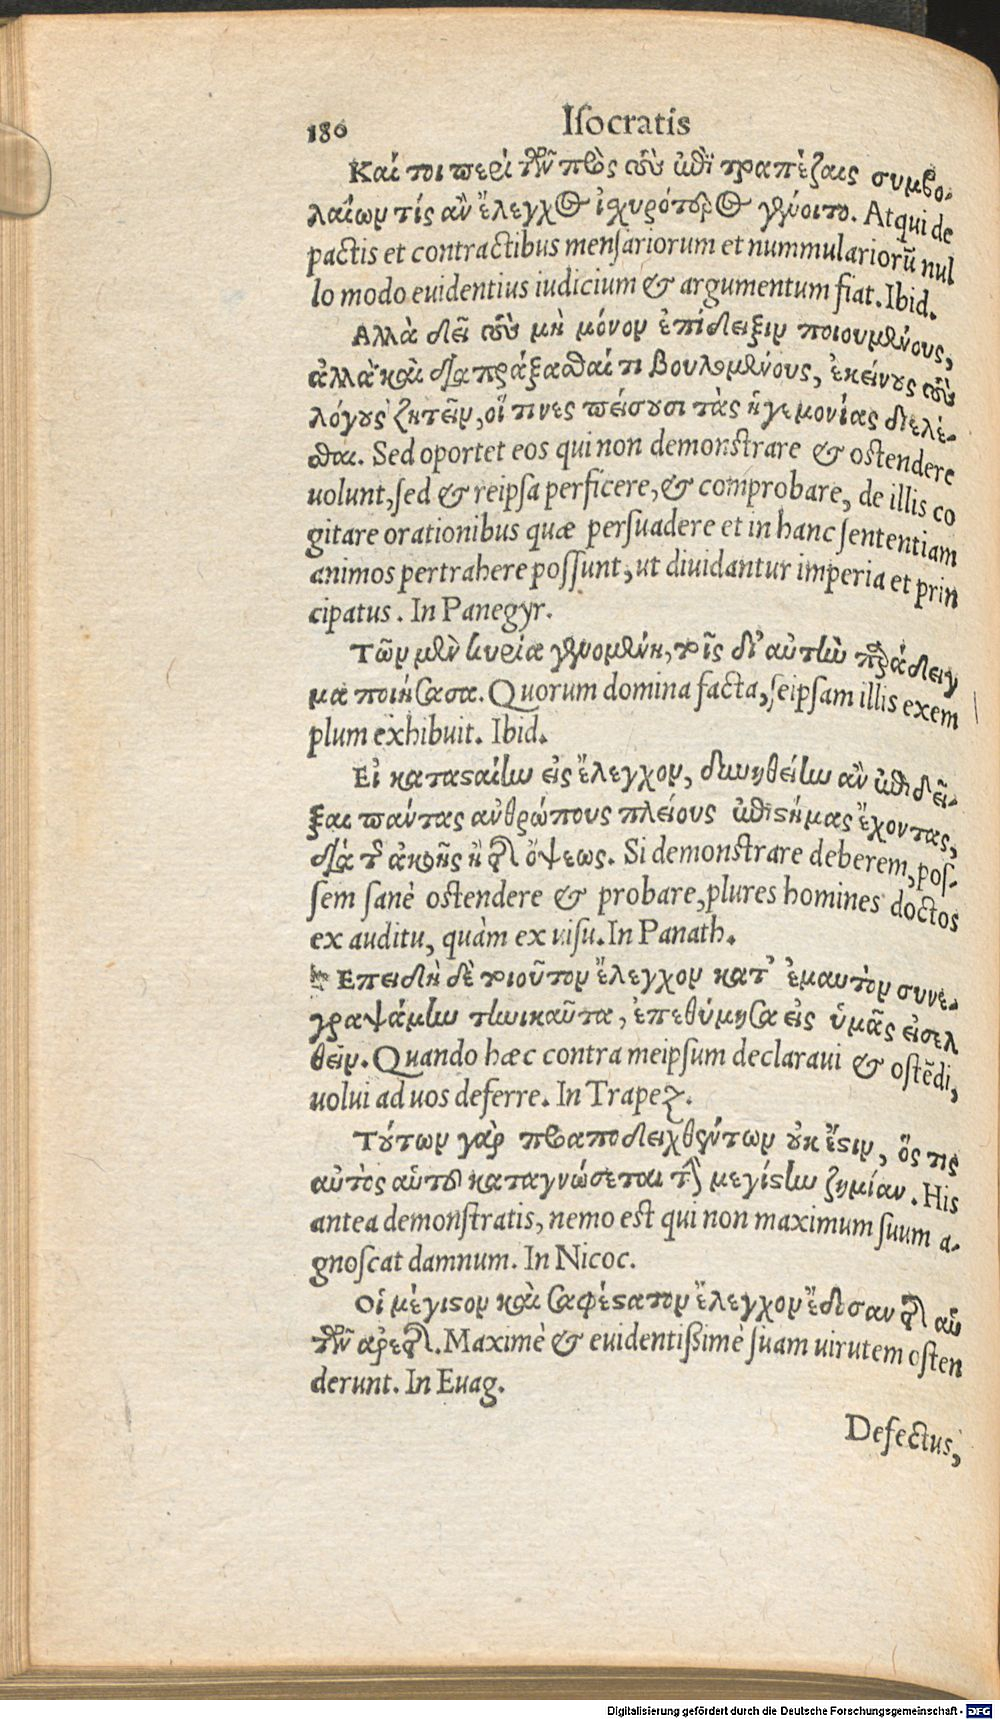 180 Iſocratis
Καί τοι περὶ τῶν πρὸς τοὺς ἐπὶ τραπέζαις συμβο-
λαίων τίς ἂν ἔλεγχος ἰσχυρότερος γένοιτο. Atqui de
pactis et contractibus menſariorum et nummulariorū nul
lo modo euidentius iudicium & argumentum fiat. Ibid.
Αλλὰ δεῖ τοὺς μὴ μόνον ἐπίδειξιν ποιουμένους,
ἀλλὰ καὶ διαπράξασθαί τι βουλομένους, ἐκείνους τοὺς
λόγους ζητεῖν, οἵ τινες πείσουσι τὰς ἡγεμονίας διελέ-
σθαι. Sed oportet eos qui non demonſtrare & oſtendere
uolunt, ſed & reipſa perficere, & comprobare, de illis co
gitare orationibus quæ perſuadere et in hanc ſententiam
animos pertrahere poſſunt, ut diuidantur imperia et prin
cipatus. In Panegyr.
Τῶν μὲν κυρία γενομένη, τοῖς δ' αὑτὴν παράδειγ
μα ποιήσασα. Quorum domina facta, ſeipſam illis exem
plum exhibuit. Ibid.
Εἰ κατασταίην εἰς ἔλεγχον, δυνηθείην ἂν ἐπιδεῖ-
ξαι πάντας ἀνθρώπους πλείους ἐπιστήμας ἔχοντας,
διὰ τῆς ἀκοῆς ἢ τῆς ὄψεως. Si demonſtrare deberem, poſ-
ſem ſanè oſtendere & probare, plures homines doctos
ex auditu, quàm ex uiſu. In Panath.
Επειδὴ δὲ τοιοῦτον ἔλεγχον κατ' ἐμαυτὸν συνε-
γραψάμην τηνικαῦτα, ἐπεθύμησα εἰς ὑμᾶς εἰσελ
θεῖν. Quando hæc contra meipſum declaraui & oſtēdi,
uolui ad uos deferre. In Trapez.
Τούτων γὰρ προαποδειχθέντων οὐκ ἔστιν, ὅς τις
αὐτὸς αὑτοῦ καταγνώσεται τὴν μεγίστην ζημίαν. His
antea demonſtratis, nemo est qui non maximum ſuum a-
gnoſcat damnum. In Nicoc.
Οἱ μέγιστον καὶ σαφέστατον ἔλεγχον ἔδοσαν τῆς αὑ
τῶν ἀρετῆς. Maximè & euidentißimè ſuam uirutem oſten
derunt. In Euag.
Defectus,
Digitalisierung gefördert durch die Deutsche Forschungsgemeinschaft - DFG